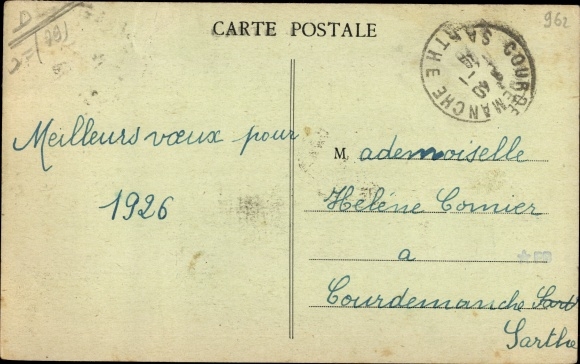 CARTE POSTALE
962
COURDEMANCHE
SARTHE
Meilleurs vœux pour
1926
Mademoiselle
Hélène Cornier
a
Courdemanche Sart
Sarthe